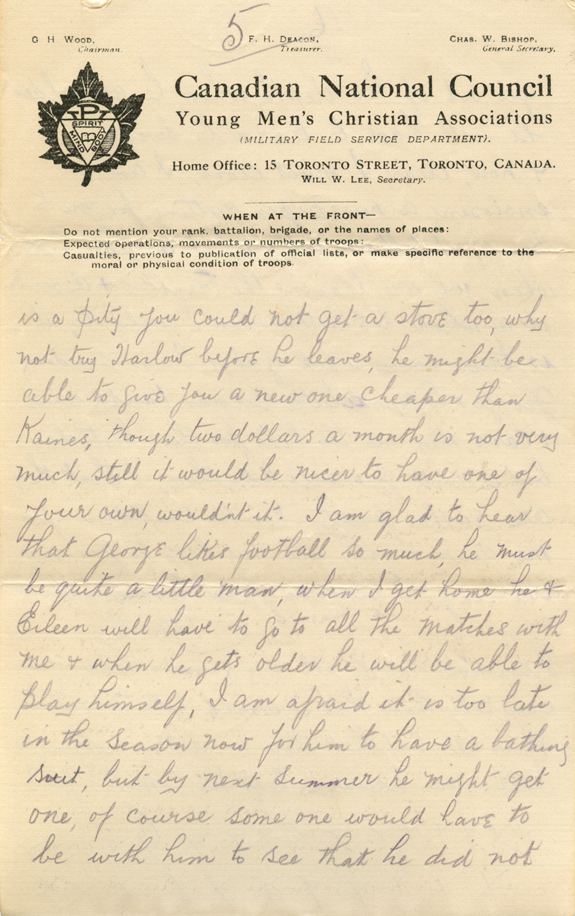 5
G H WOOD, F. H. DEACON, CHAS. W. BISHOP,
Chairman. Treasurer. General Secretary.
SPIRIT
MIND
BODY
Canadian National Council
Young Men's Christian Associations
(MILITARY FIELD SERVICE DEPARTMENT).
Home Office: 15 TORONTO STREET, TORONTO, CANADA.
WILL W. LEE, Secretary.
WHEN AT THE FRONT—
Do not mention your rank, battalion, brigade, or the names of places:
Expected operations, movements or numbers of troops:
Casualties, previous to publication of official lists, or make specific reference to the
moral or physical condition of troops.
is a pity you could not get a stove too, why
not try Harlow before he leaves, he might be
able to give you a new one cheaper than
Kaines, though two dollars a month is not very
much, still it would be nicer to have one of
your own, wouldn't it. I am glad to hear
that George likes football so much, he must
be quite a little man, when I get home he &
Eileen will have to go to all the matches with
me & when he gets older he will be able to
play himself, I am afraid it is too late
in the season now for him to have a bathing
suit, but by next summer he might get
one, of course some one would have to
be with him to see that he did not